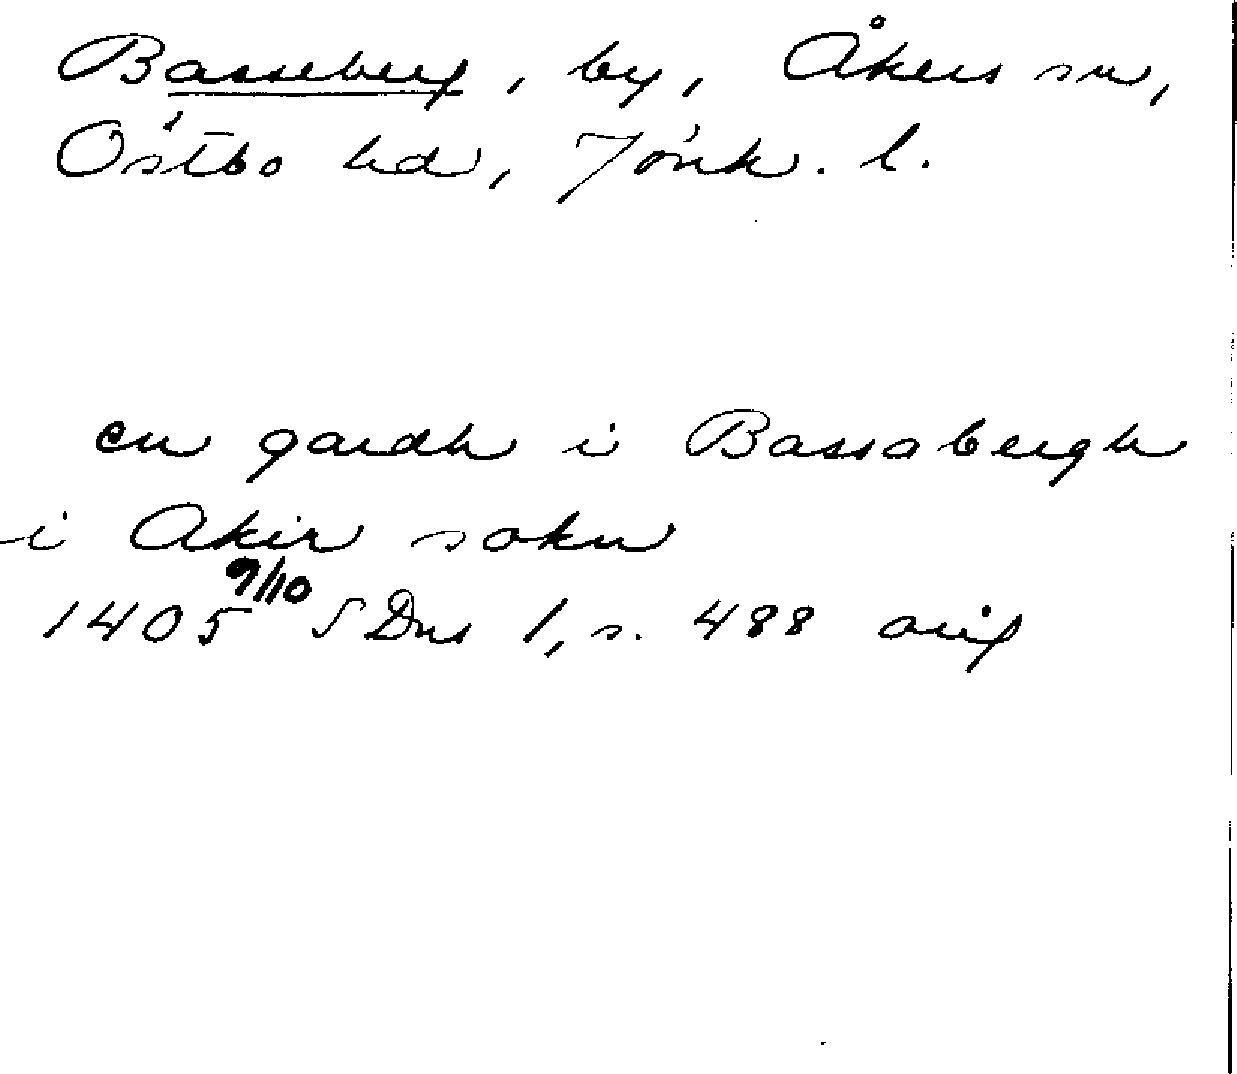 Basseberg, by, Åkers sn,
Östbo hd, Jönk. l.
en gardh i Bassabergh
i Akir sokn
1405 9/10 SDns 1, s. 488 orig